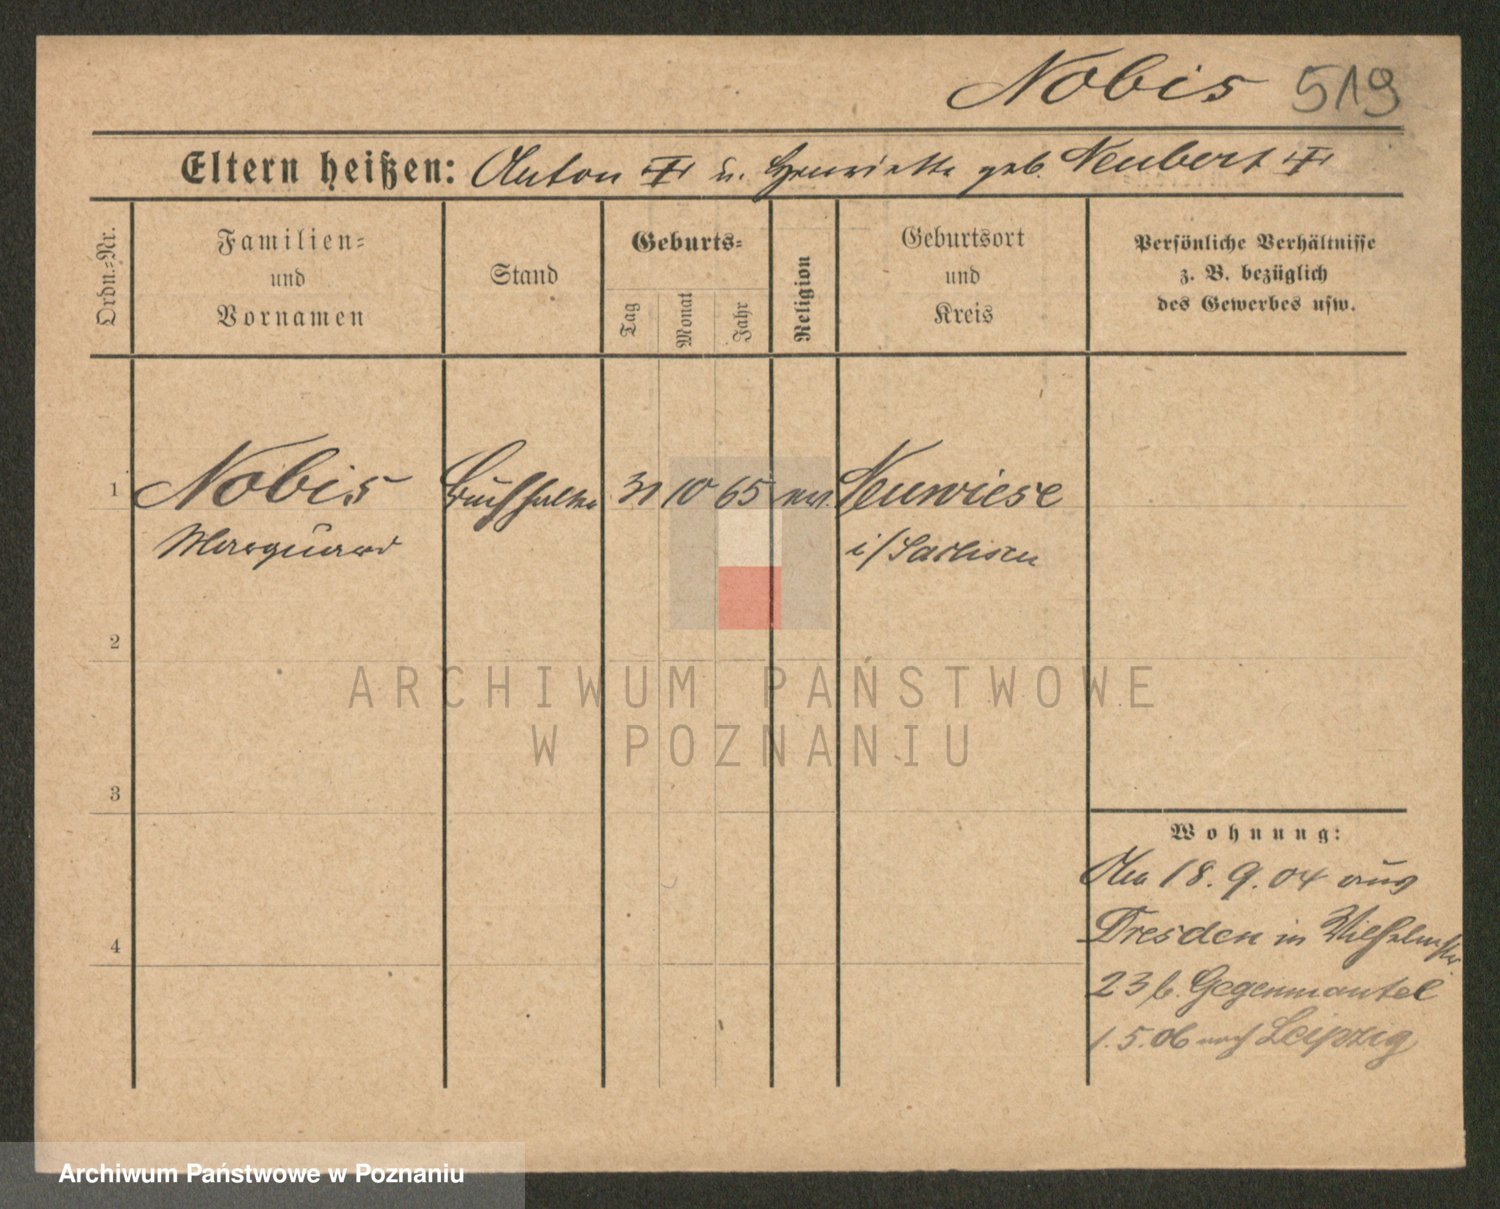 Nobis 519
Eltern heißen: Anton † u. Henriette geb. Neubert †
Ordn.=Nr.
Familien=
und
Vornamen
Stand
Geburts=
Tag
Monat
Jahr
Religion
Geburtsort
und
Kreis
Persönliche Verhältnisse
z. B. bezüglich
des Gewerbes usw.
1 Nobis Buchhalter 31 10 65 ev. Neuwiese
Marquard i/Sachsen
2
3
4
Wohnung:
18.9.04 aus
Dresden in Wilhelmstr.
23 b. Gegenmantel
1.5.06 nach Leipzig
ARCHIWUM PAŃSTWOWE
W POZNANIU
Archiwum Państwowe w Poznaniu